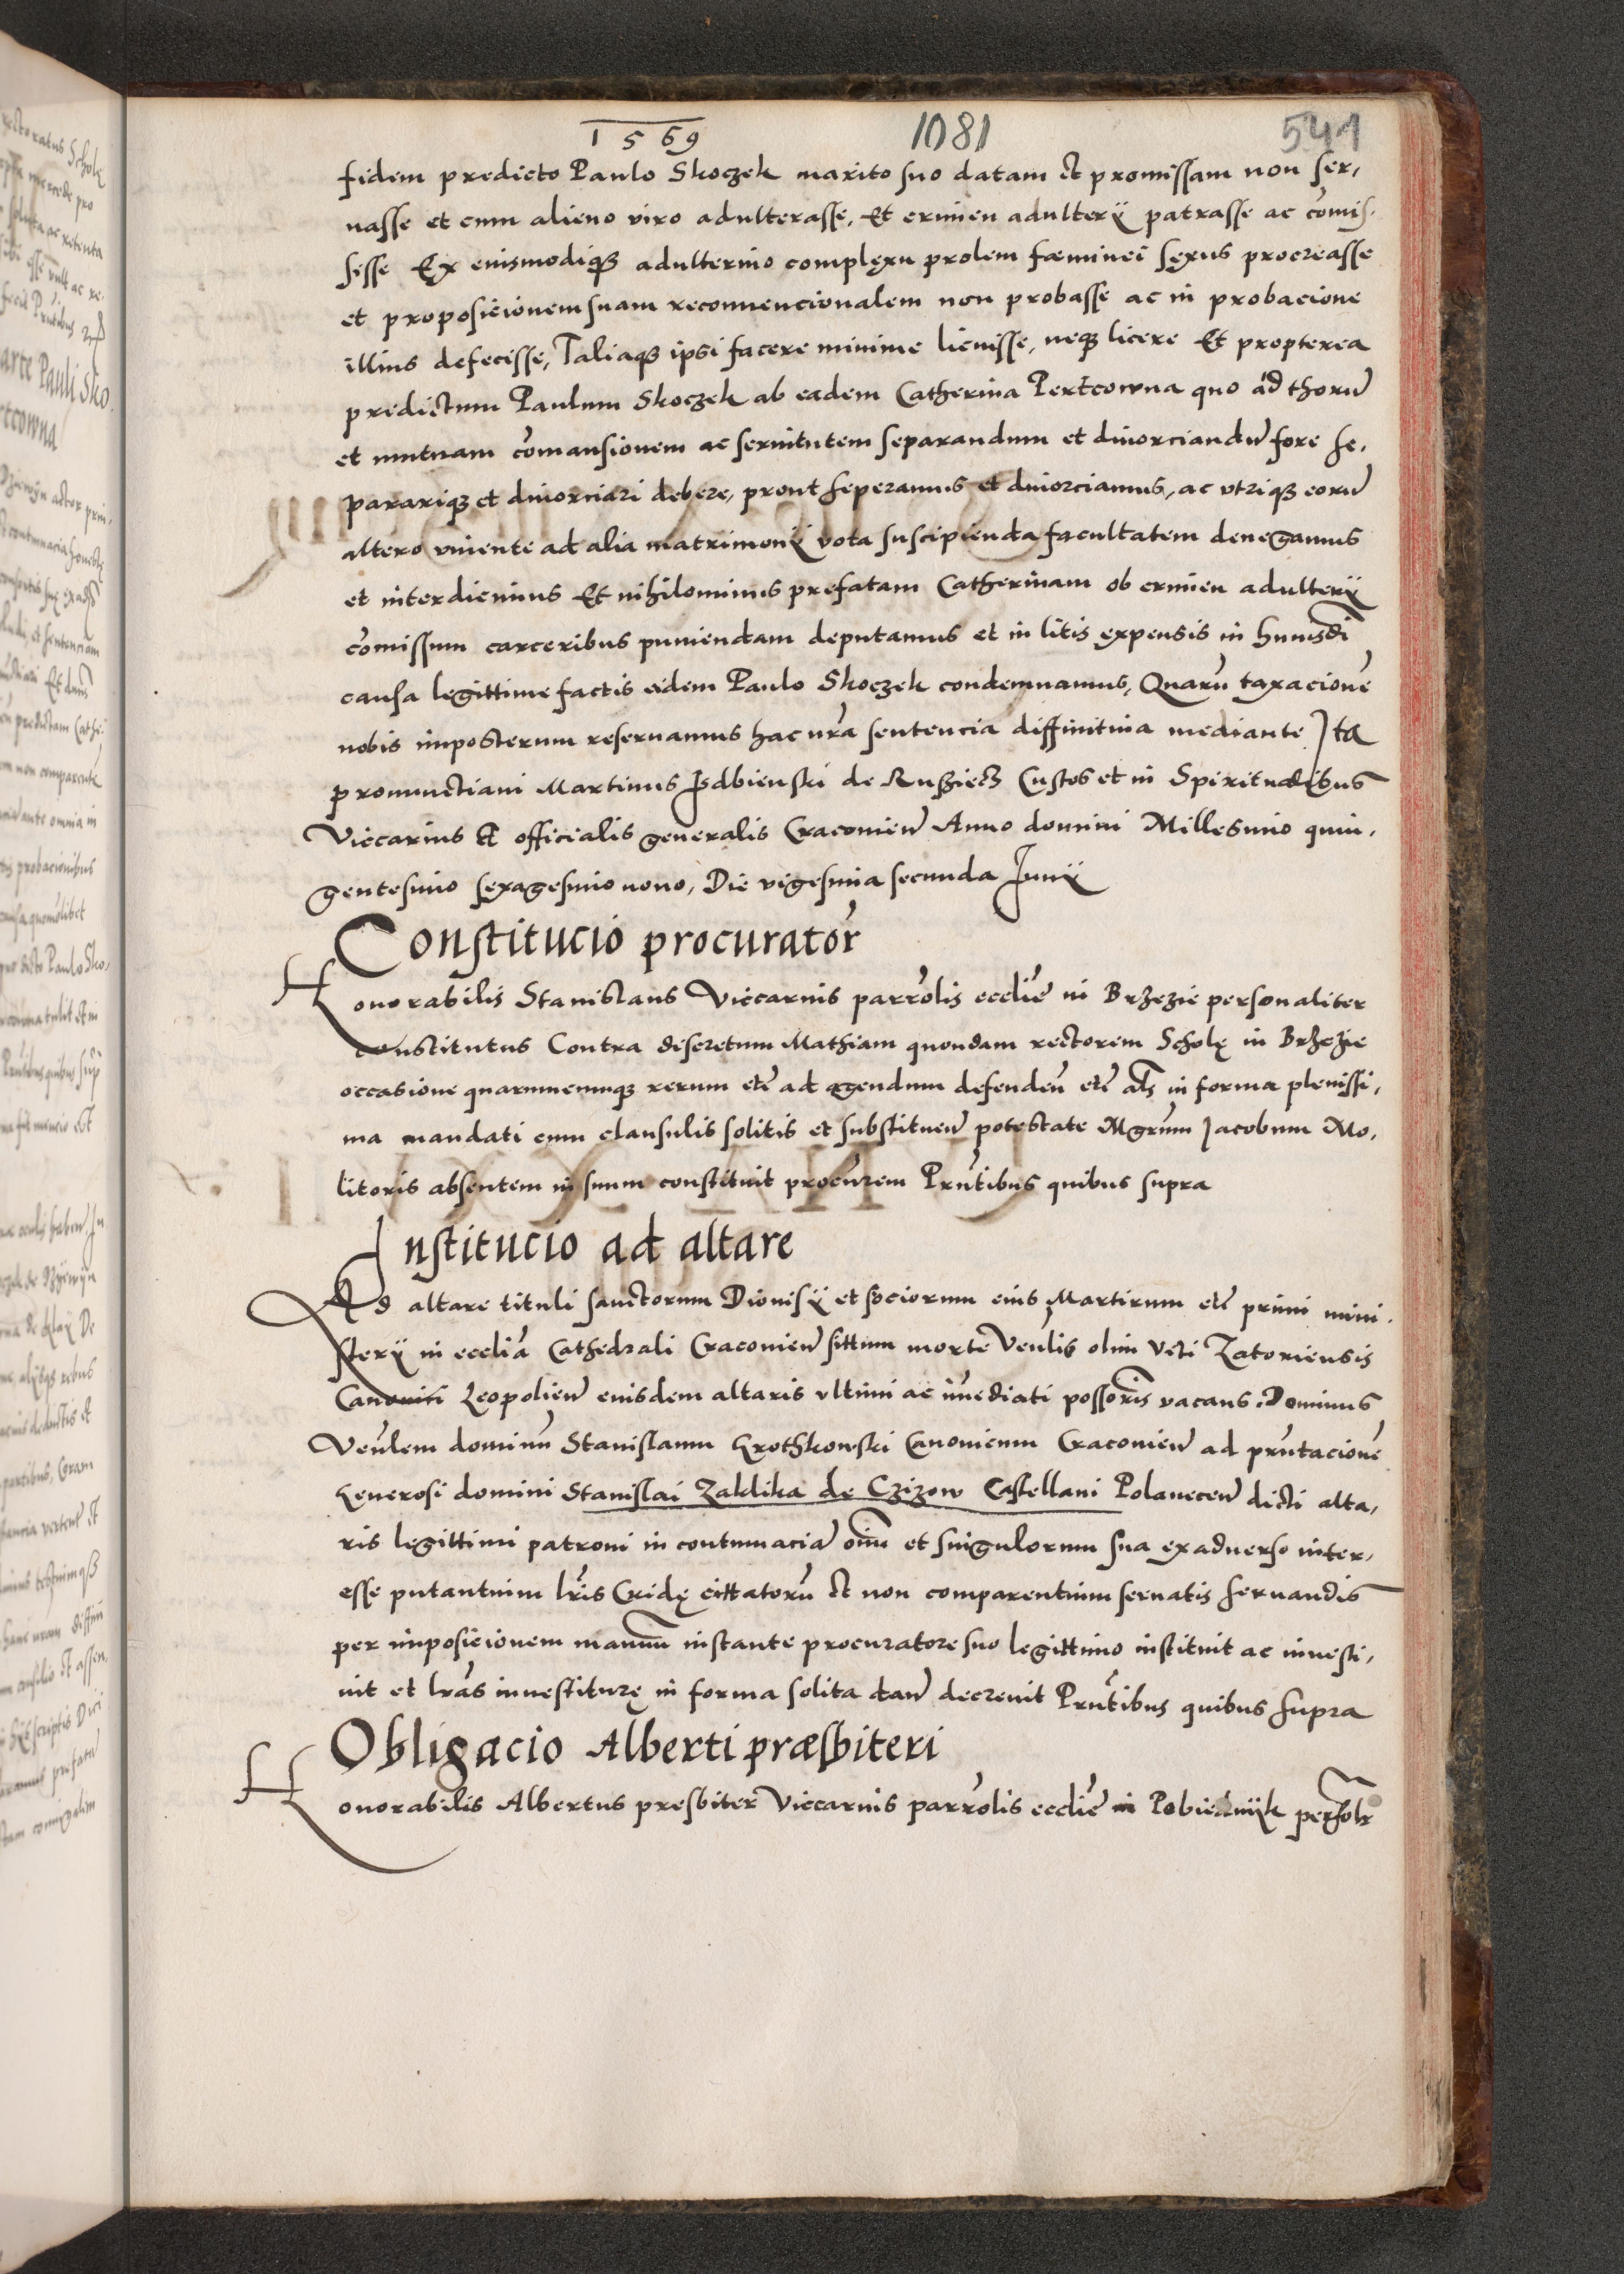 1569 1081 541
fidem predicto Paulo Skoczek marito suo datam et promissam non ser,
uasse et cum alieno viro adulterasse, Et crimen adulterÿ patrasse ac cōmis,
sisse Ex eiusmodiq₃ adulterino complexu prolem fæminei sexus procreasse
et proposicionem suam reconuencionalem non probasse ac in probacione
illius defecisse, Taliaq₃ ipsi facere minime licuisse, neq₃ licere Et propterea
predictum Paulum Skoczek ab eadem Catherina Pertcowna quo ad thorū
et mutuam cōmansionem ac seruitutem separandum et diuorciandū fore se,
parariq₃ et diuorciari debere, prout seperamus et diuorciamus, ac vtriq₃ eorū
altero viuente ad alia matrimonÿ vota suscipienda facultatem denegamus
et interdicimus Et nihilominus prefatam Catherinam ob crimen adulterÿ
cōmissum carceribus puniendam deputamus et in litis expensis in huiusdi
causa legittime factis eidem Paulo Skoczek condemnamus, Quarū taxacionē
nobis imposterum reseruamus hac nrā sentencia diffinitiua mediante Ita
pronunctiaui Martinus Isdbienski de Rusziecz Custos et in Spiritualibus
Viccarius et officialis generalis Cracouien̄ Anno domini Millesimo quin,
gentesimo sexagesimo nono, Die vigesima secunda Junÿ
Constitucio procurator̄
Honorabilis Stanislaus Viccarius parrōlis eccliē in Brzezie personaliter
constitutus Contra discretum Mathiam quondam rectorem Scholę in Brzezie
occasione quarumcumq₃ rerum etc̄ ad agendum defenden̄ etc̄ als in forma plenissi,
ma mandati cum clausulis solitis et substituen̄ potestate Mgrūm Jacobum Mo,
litoris absentem in suum constituit procūrem Prn̄tibus quibus supra
Institucio ad altare
Ad altare tituli sanctorum Dionisÿ et sociorum eius Martirum etc̄ primi mini,
sterÿ in eccliā Cathedrali Cracouien̄ sittum morte Venlis olim Viti Zatoriensis
Canonici Leopolien̄ eiusdem altaris vltimi ac īmediati possoris vacans. Dominus
Venlem dominū Stanislaum Krothkowski Canonicum Cracouien̄ ad prn̄tacionē
Generosi domini Stanislai Zaklika de Czizow Castellani Polanecen̄ dicti alta,
ris legittimi patroni in contumaciā oim̄ et singulorum sua ex aduerso inter,
esse putantium lr̄is Cridę cittatorū et non comparentium seruatis seruandis
per imposicionem manuū instante procuratore suo legittimo instituit ac inuesti,
uit et lrās inuestiturę in forma solita dan̄ decreuit Prn̄tibus quibus supra
Obligacio Alberti præsbiteri
Honorabilis Albertus presbiter Viccarius parrōlis eccliē in Pobiednÿk persolr